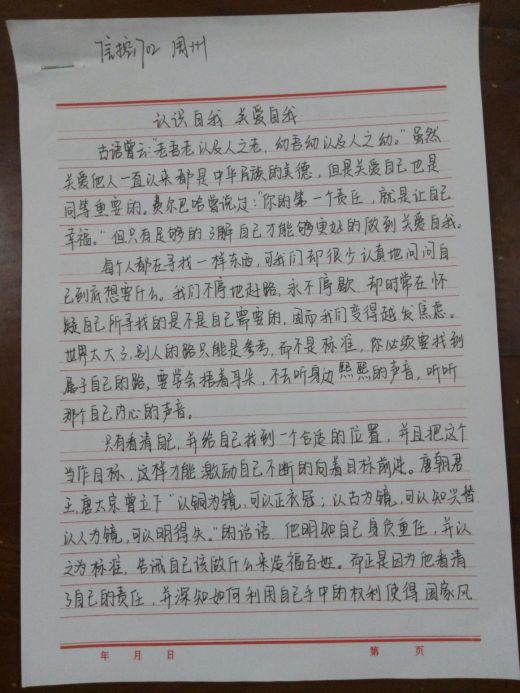 信控1702 周州
认识自我 关爱自我
古语曾云:"老吾老以及人之老,幼吾幼以及人之幼。"虽然
关爱他人一直以来都是中华民族的美德,但是关爱自己也是
同等重要的。费尔巴哈曾说过:"你的第一个责任,就是让自己
幸福。"但只有足够的了解自己才能够更好的做到关爱自我。
每个人都在寻找一样东西,可我们却很少认真地问问自
己到底想要什么。我们不停地赶路,永不停歇 却时常在怀
疑自己所寻找的是不是自己需要的,因而我们变得越发焦虑。
世界太大了,别人的路只能是参考,而不是标准,你必须要找到
属于自己的路,要学会捂着耳朵,不去听身边熙熙的声音,听听
那个自己内心的声音。
只有看清自己,并给自己找到一个合适的位置,并且把这个
当作目标,这样才能激励自己不断的向着目标前进。唐朝君
王,唐太宗曾立下"以铜为镜,可以正衣冠;以古为镜,可以知兴替
以人为镜,可以明得失。"的话语 他明知自己身负重任,并以
之为标准,告诫自己该做什么来造福百姓。而正是因为他看清
了自己的责任,并深知如何利用自己手中的权利使得国家风
年 月 日 第 页